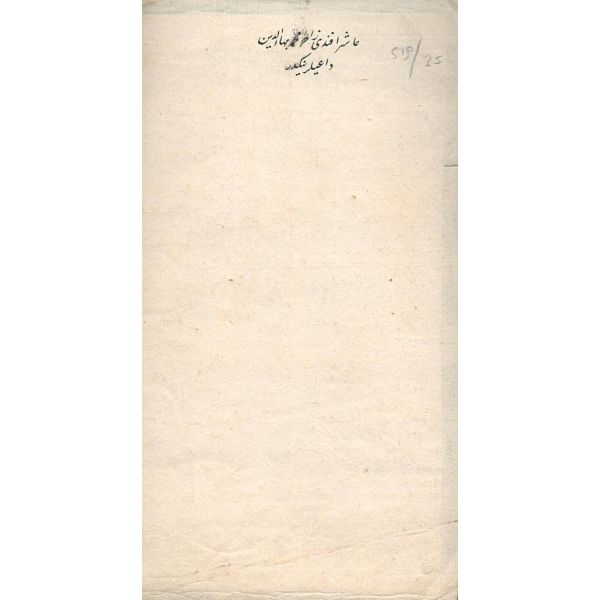 عاشر افندی زاده محمد بهاالدین
داعیلرینكدر
519/25